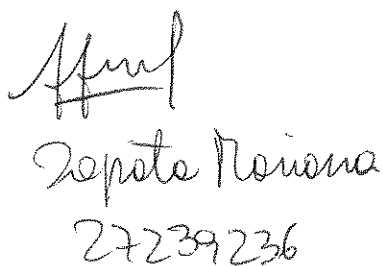 Zapata Mariana
27239236